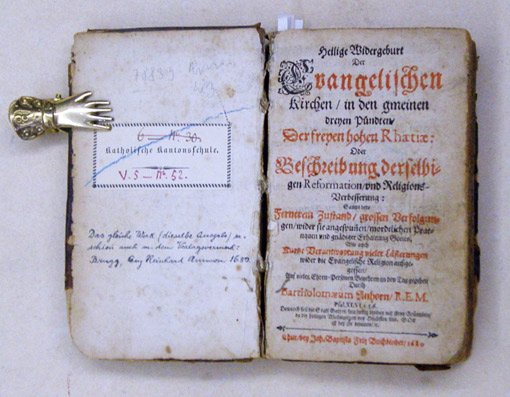 6 - Nr. 30.
Katholische Kantonsschule.
V. 5 - Nr. 52.
Das gleiche Werk (dieselbe Ausgabe) er-
schien auch in dem Verlagsvermerk:
Brugg, bey Heinrich Ammon 1680.
Heilige Widergeburt
Der
Evangelischen
Kirchen / in den gmeinen
dreyen Pündten /
Der freyen hohen Rhætiæ:
Oder
Beschreibung derselbi-
gen Reformation / und Religions-
Verbesserung:
Sampt dero
Ferneren Zustand / grossen Verfolgun-
gen / wider sie angespunnen / mordtlichen Prac-
ticken und gnädiger Erhaltung Gottes,
Wie auch
Kurtze Verantwortung vieler Lästerungen
wider die Evangelische Religion außge-
gossen /
Auf vieler Ehren-Personen Begehren an den Tag gegeben /
Durch
Bartholomæum Anhorn / P. E. M.
Chur / bey Joh. Baptista
Buchbinder / 1680